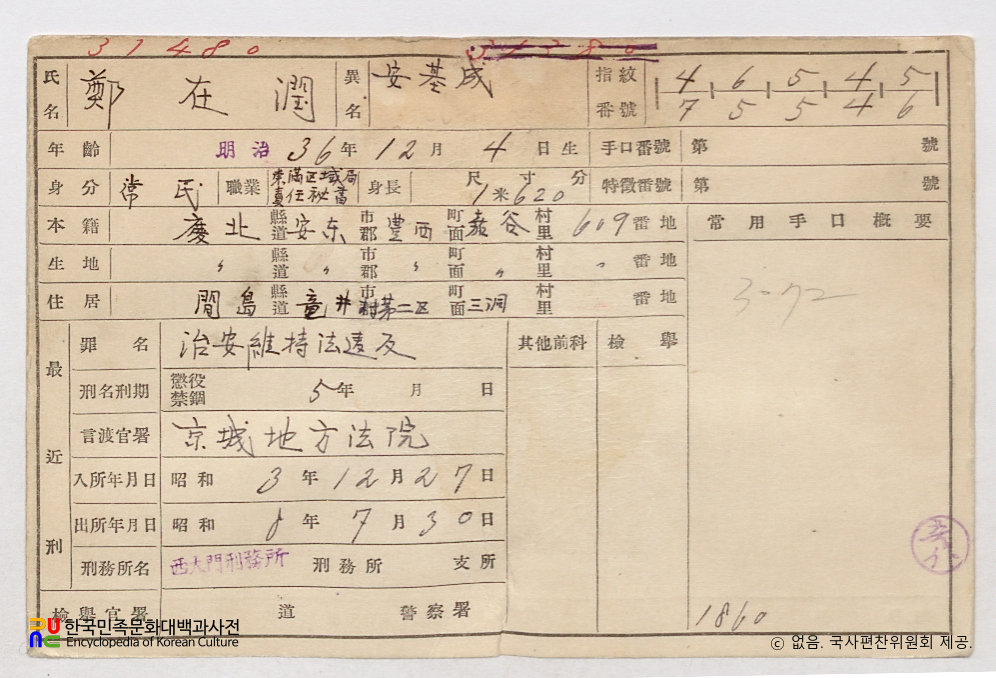 31480
氏名 鄭在潤 異名 安基成 指紋番號 4 6 5 4 5
7 5 5 4 6
年齡 明治36年12月4日生 手口番號 第 號
身分 常民 職業 東滿区域局責任秘書 身長 尺寸分 1米620 特徵番號 第 號
本籍 慶北 縣道 安东 市郡 豊西 町面 嘉谷 村里 609 番地 常用手口概要
生地 〃 縣道 〃 市郡 〃 町面 〃 村里 〃 番地
住居 間島 縣道 竜井 市郡 村第二区 町面 三洞 村里 番地
3-72
最近刑 罪名 治安維持法違反 其他前科 檢擧
刑名刑期 懲役禁錮 5年 月 日
言渡官署 京城地方法院
入所年月日 昭和3年12月27日
出所年月日 昭和8年7月30日
刑務所名 西大門刑務所 刑務所 支所
檢擧官署 道 警察署
1860
한국민족문화대백과사전
Encyclopedia of Korean Culture
ⓒ 없음. 국사편찬위원회 제공.